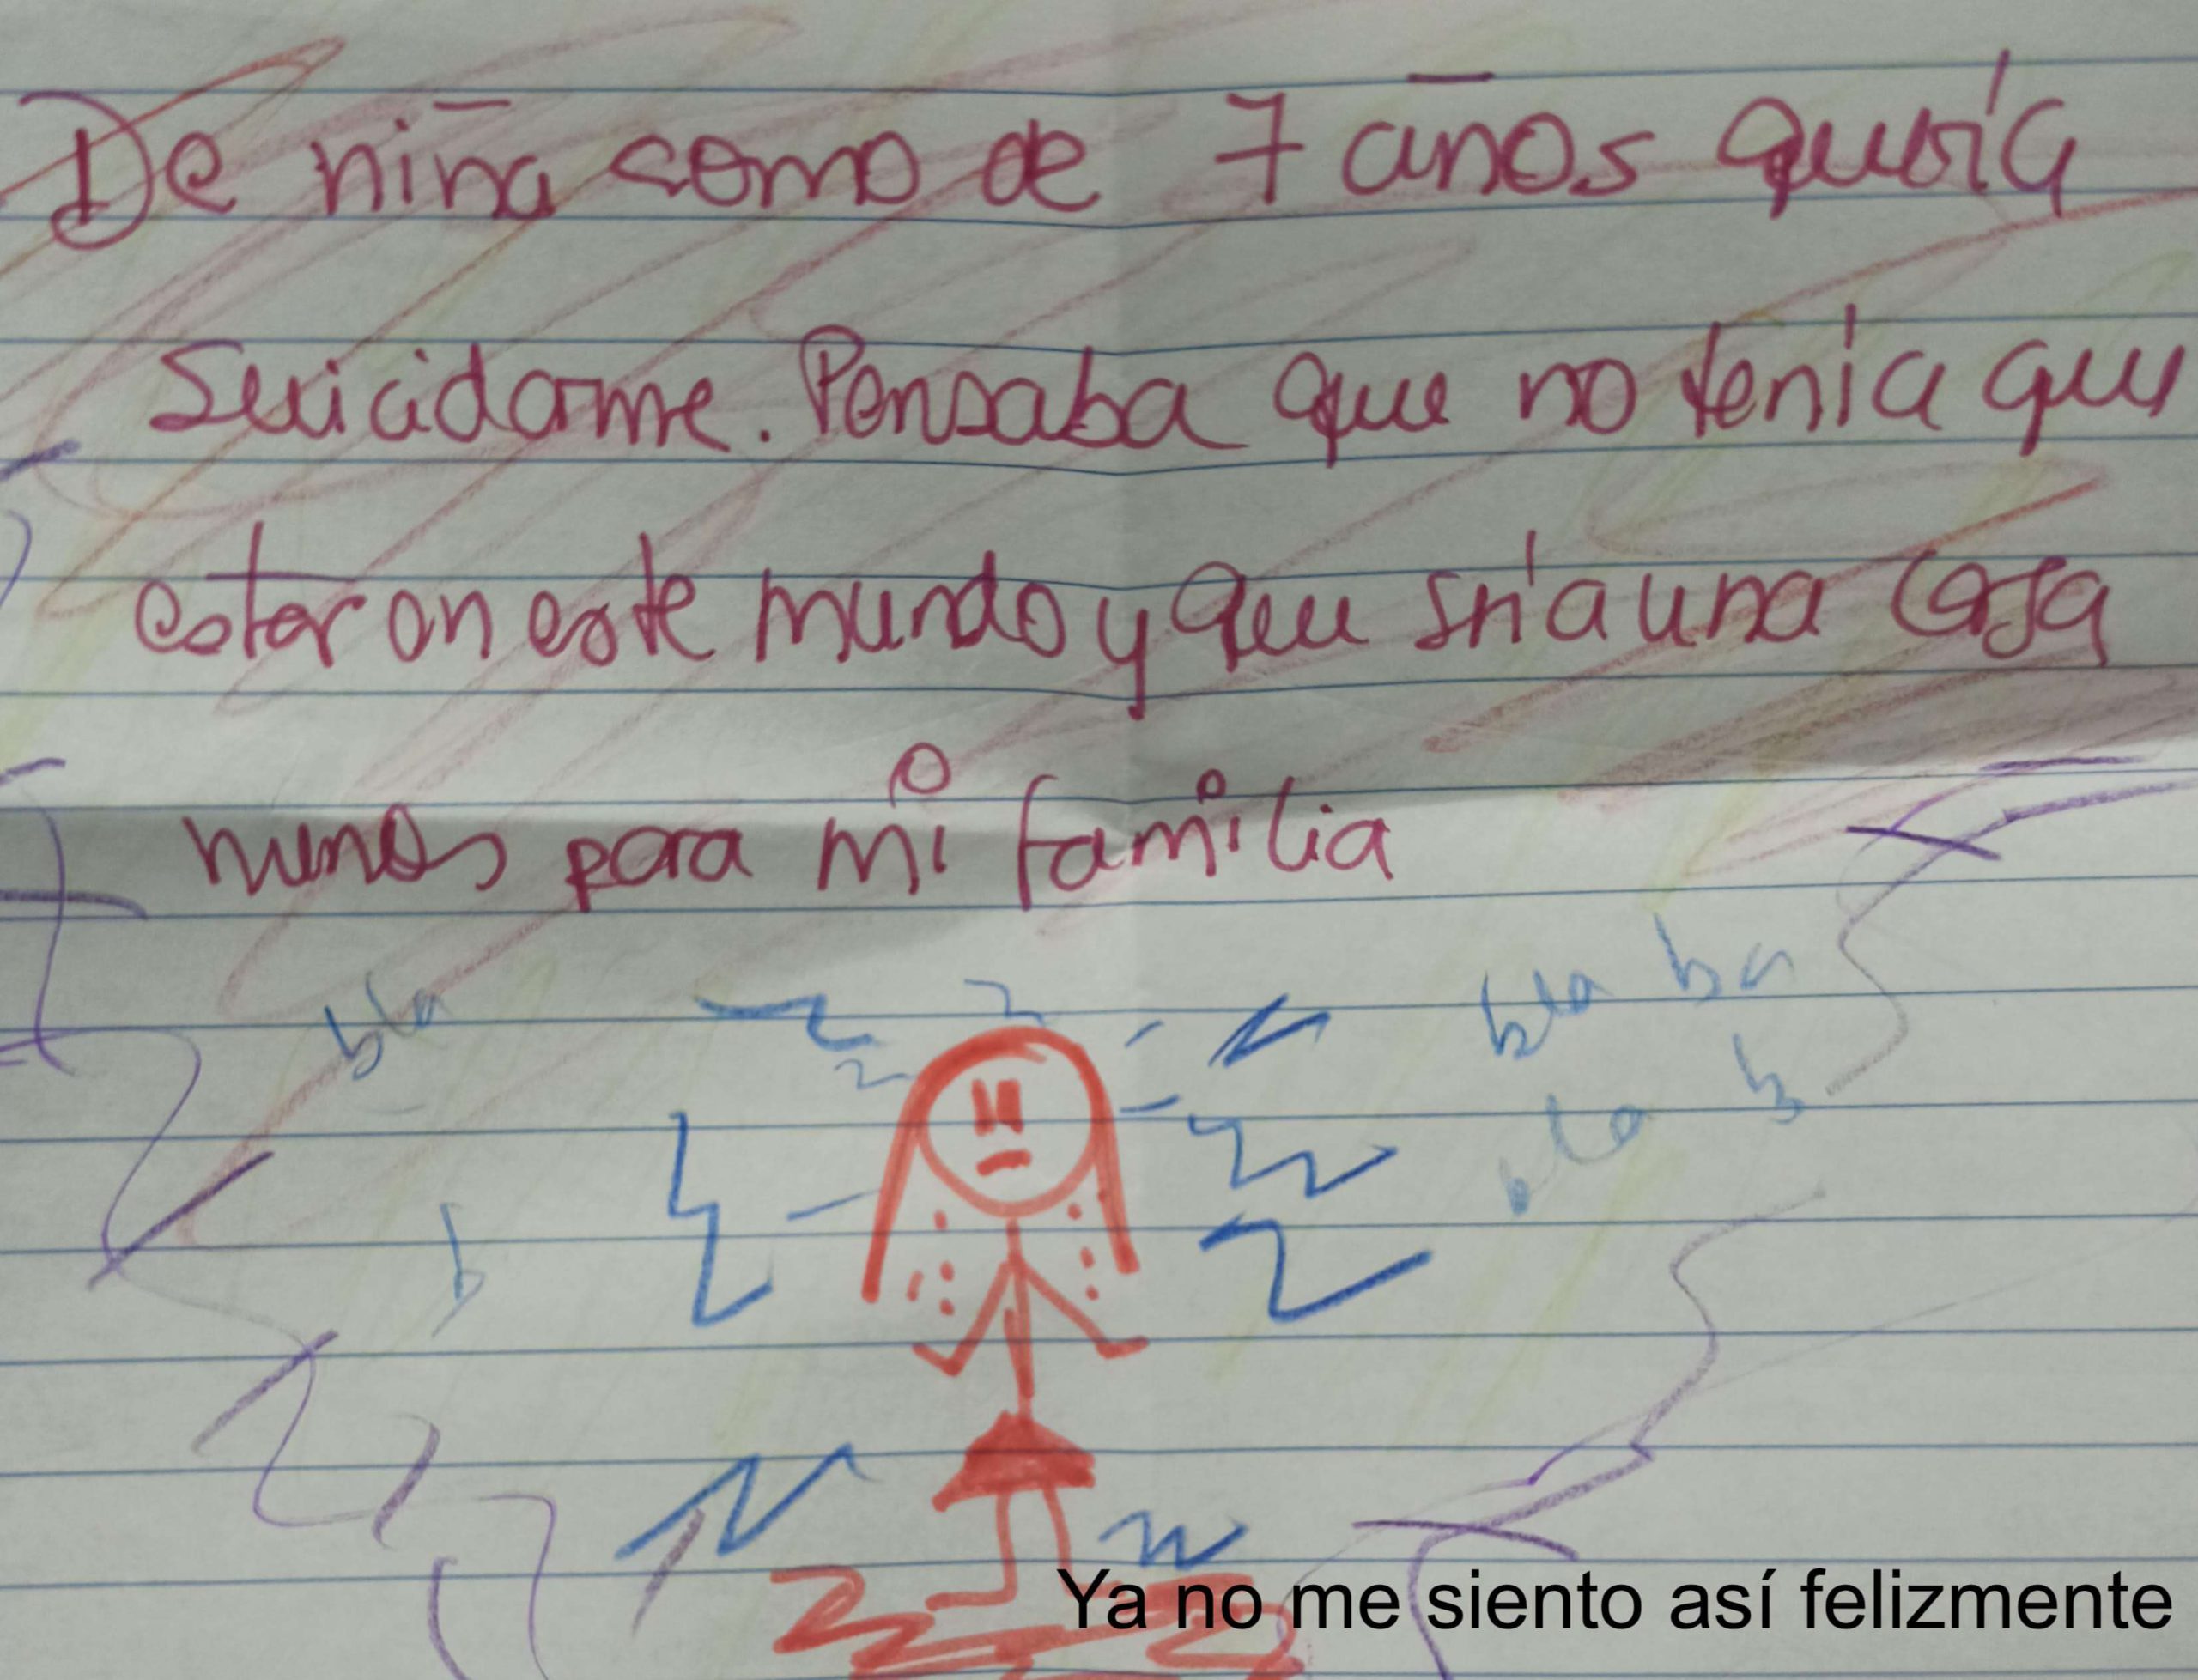 De niña como de 7 años quería
suicidarme. Pensaba que no tenía que
estar en este mundo y que sría una cosa
menos para mi familia
bla
bla ba
bla b
b
Ya no me siento así felizmente